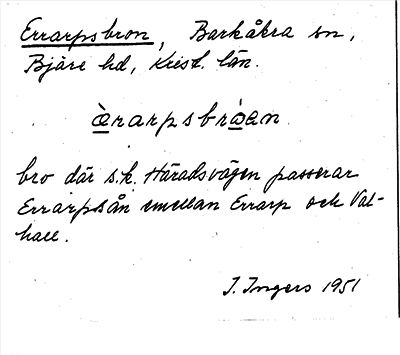 Errarpsbron, Barkåkra sn,
Bjäre hd, Krist. län.
èrarpsbròen
bro där s.k. Häradsvägen passerar
Errarpsån emellan Errarp och Val-
hall.
I. Ingers 1951